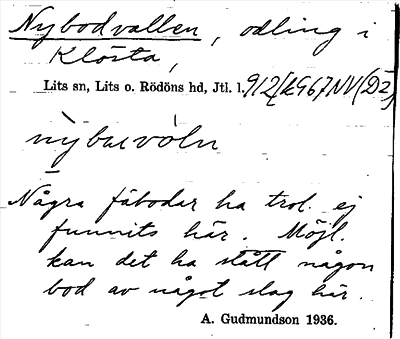 Nybodvallen, odling i
Klösta,
Lits sn, Lits o. Rödöns hd, Jtl. l.
nỳbuvòln
Några fäbodar ha trol. ej
funnits här. Möjl.
kan det ha stått någon
bod av något slag här.
A. Gudmundson 1936.